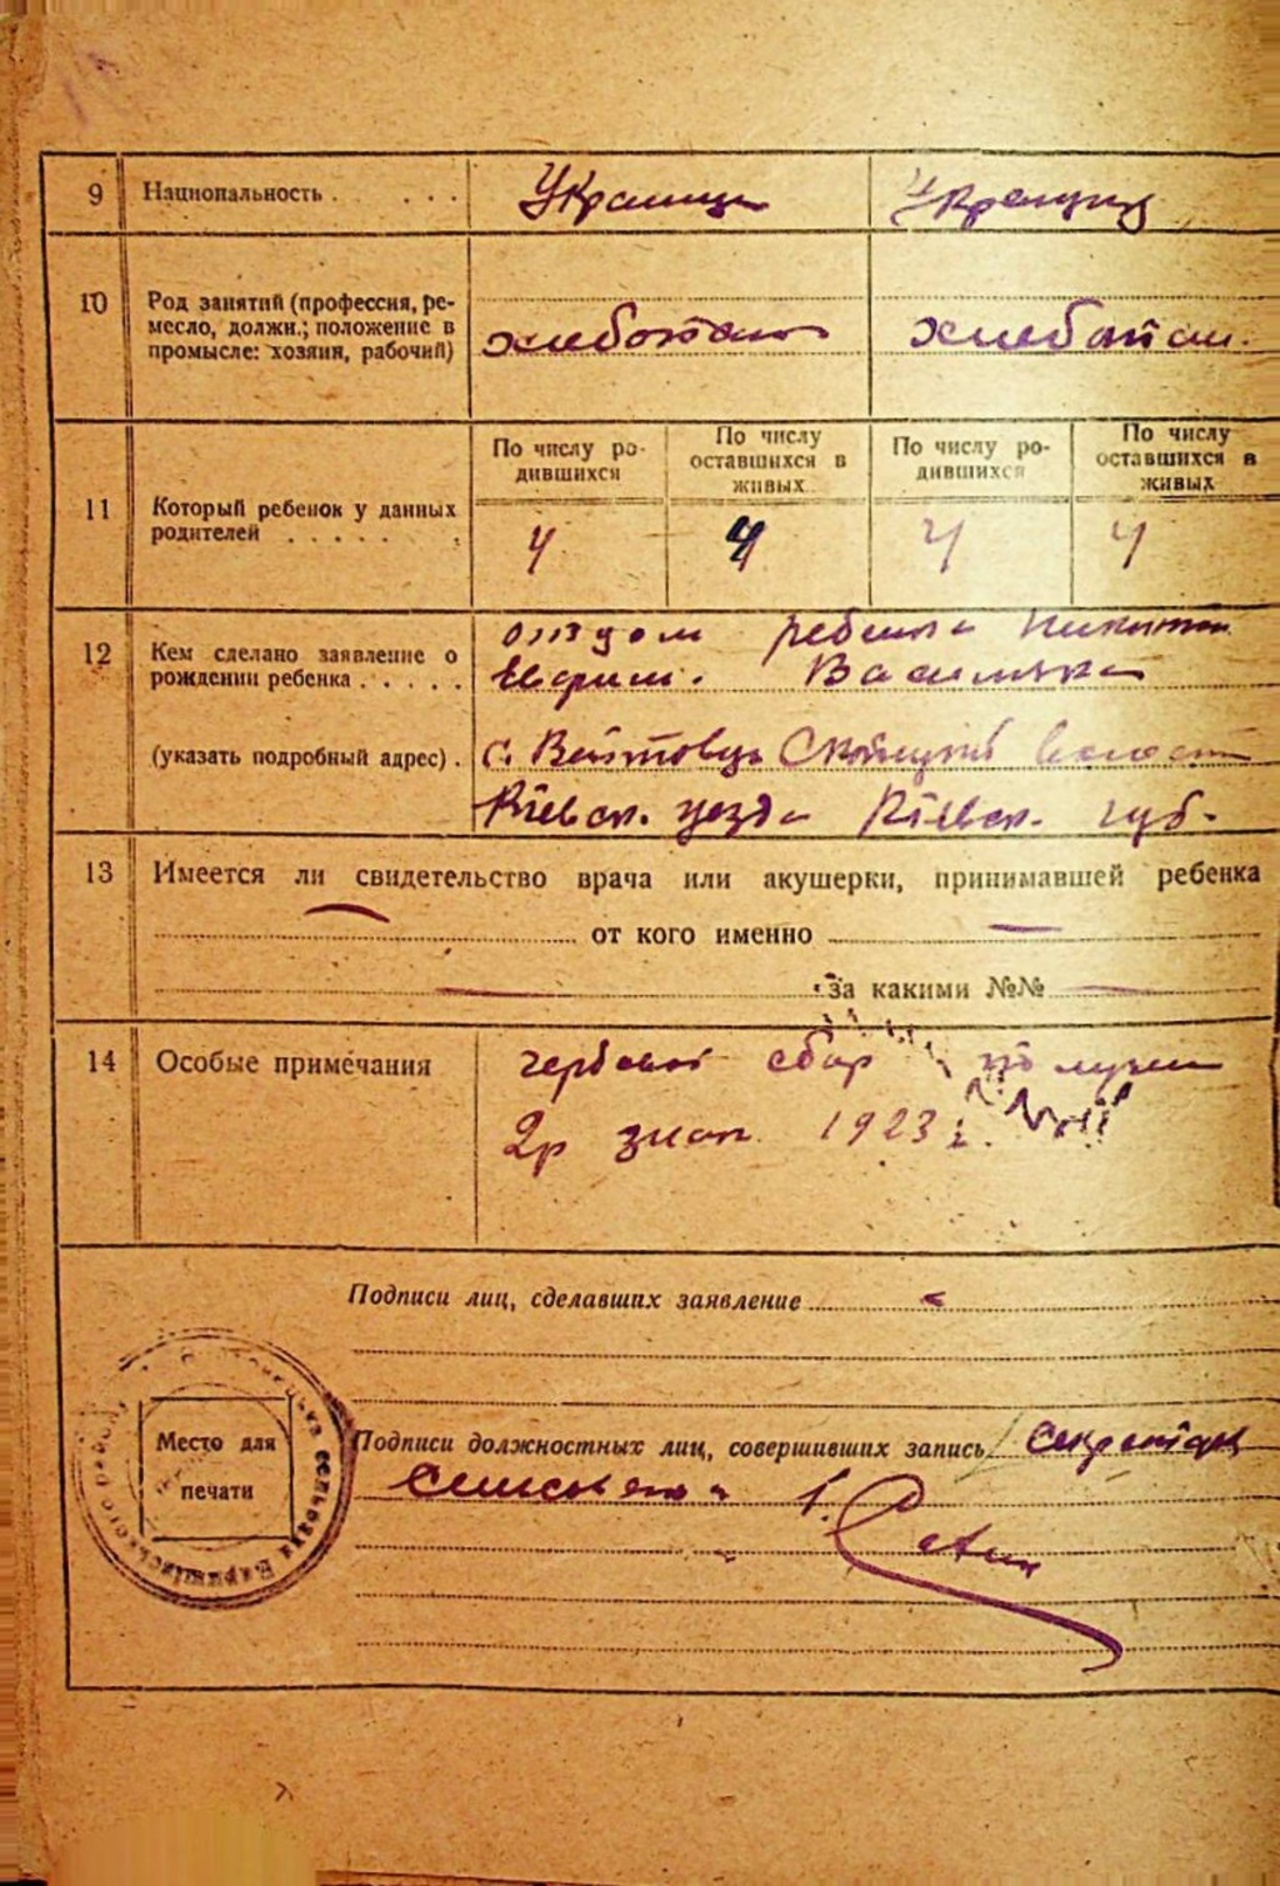 9 Национальность . . . . . Украинец Украинка
10 Род занятий (профессия, ре-
месло, должн.; положение в
промысле: хозяин, рабочий)
хлебопаш хлебопаш.
По числу ро-
дившихся
По числу
оставшихся в
живых
По числу ро-
дившихся
По числу
оставшихся в
живых
11 Который ребенок у данных
родителей . . . . . .
4 4 4 4
12 Кем сделано заявление о
рождении ребенка . . . . .
отцом ребенка
(указать подробный адрес) .
с. Войтовцы
Киевск. уезда Киевск. губ.
13 Имеется ли свидетельство врача или акушерки, принимавшей ребенка
от кого именно
за какими №№
14 Особые примечания
гербовой сбор
2р 1923 г.
Подписи лиц, сделавших заявление
Место для
печати
Подписи должностных лиц, совершивших запись Секретарь